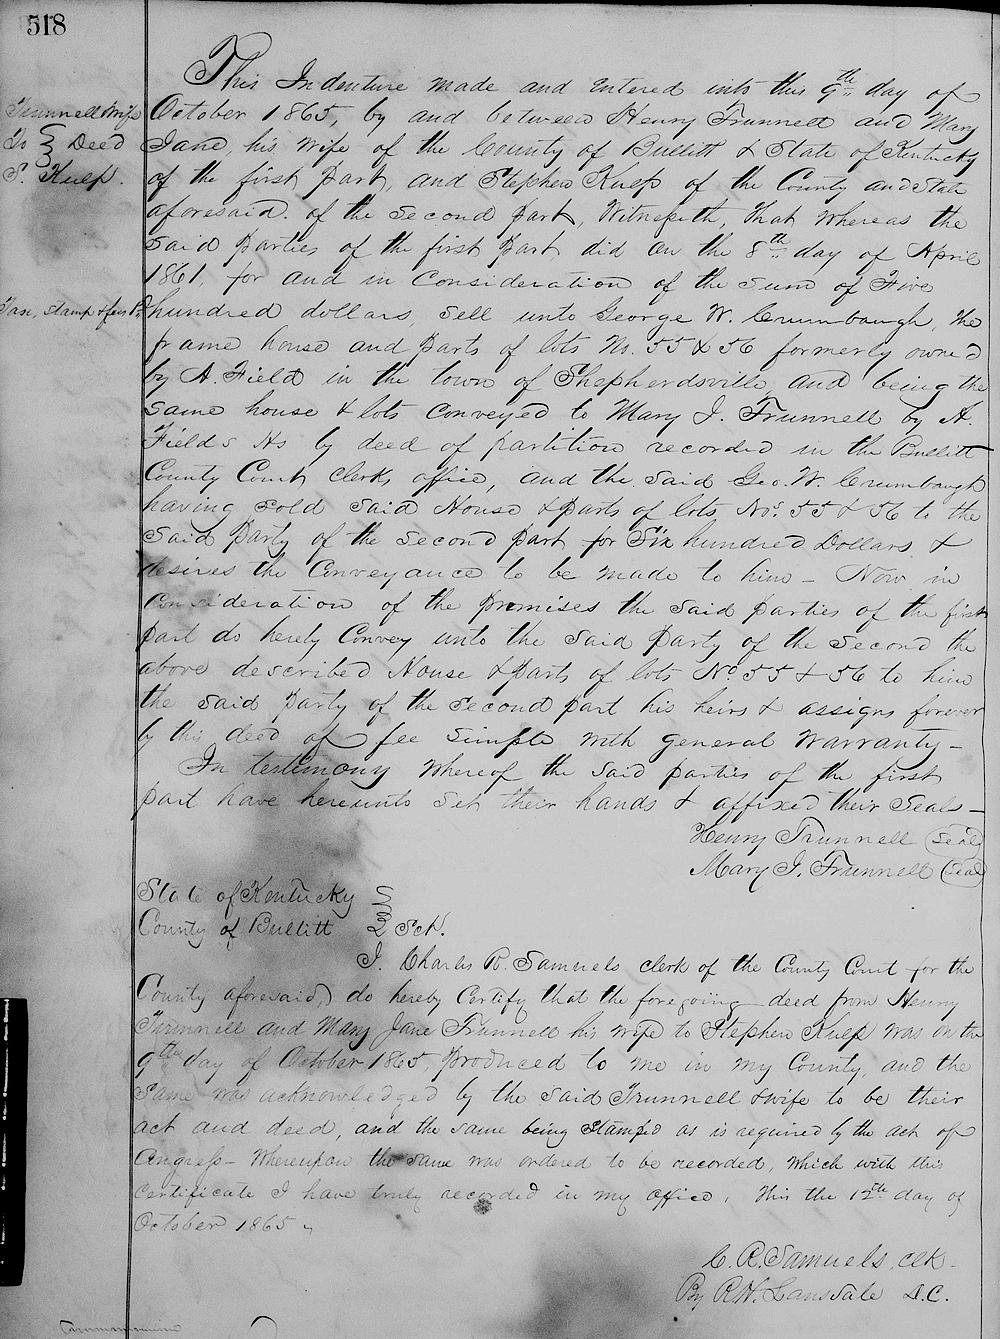 518
Trunnell & Wife
To } Deed
S. Kulp.
Tax, stamp & fees Pd
This Indenture made and entered into this 9th day of
October 1865, by and between Henry Trunnell and Mary
Jane, his wife of the County of Bullitt & State of Kentucky
of the first part, and Stephen Kulp of the County and State
aforesaid. of the second part, Witnesseth, that whereas the
said parties of the first part did on the 8th day of April
1861, for and in consideration of the sum of Five
hundred dollars, sell unto George W. Crumbaugh, the
frame house and parts of lots No. 55 & 56 formerly owned
by A. Field in the town of Shepherdsville and being the
same house & lots conveyed to Mary J. Trunnell by A.
Fields Hs by deed of partition recorded in the Bullitt
County Court clerks office, and the said Geo. W. Crumbaugh
having sold said House & parts of lots Nos. 55 & 56 to the
said party of the second part for Six hundred Dollars &
desires the Conveyance to be made to him - Now in
Consideration of the promises the said parties of the first
part do hereby Convey unto the said party of the second the
above described House & parts of lots No 55 & 56 to him
the said party of the second part his heirs & assigns forever
by this deed of fee simple with general warranty -
In testimony whereof the said parties of the first
part have hereunto set their hands & affixed their seals -
Henry Trunnell (Seal)
Mary J. Trunnell (Seal)
State of Kentucky
County of Bullitt } Sct.
I. Charles R. Samuels clerk of the County Court for the
County aforesaid, do hereby Certify that the foregoing deed from Henry
Trunnell and Mary Jane Trunnell his wife to Stephen Kulp was on the
9th day of October 1865, produced to me in my County, and the
same was acknowledged by the said Trunnell & wife to be their
act and deed, and the same being Stamped as is required by the act of
Congress - Whereupon the same was ordered to be recorded, which with this
Certificate I have truly recorded in my office, This the 12th day of
October 1865
C. R. Samuels, Clk -
By R. H. Lansdale D.C.